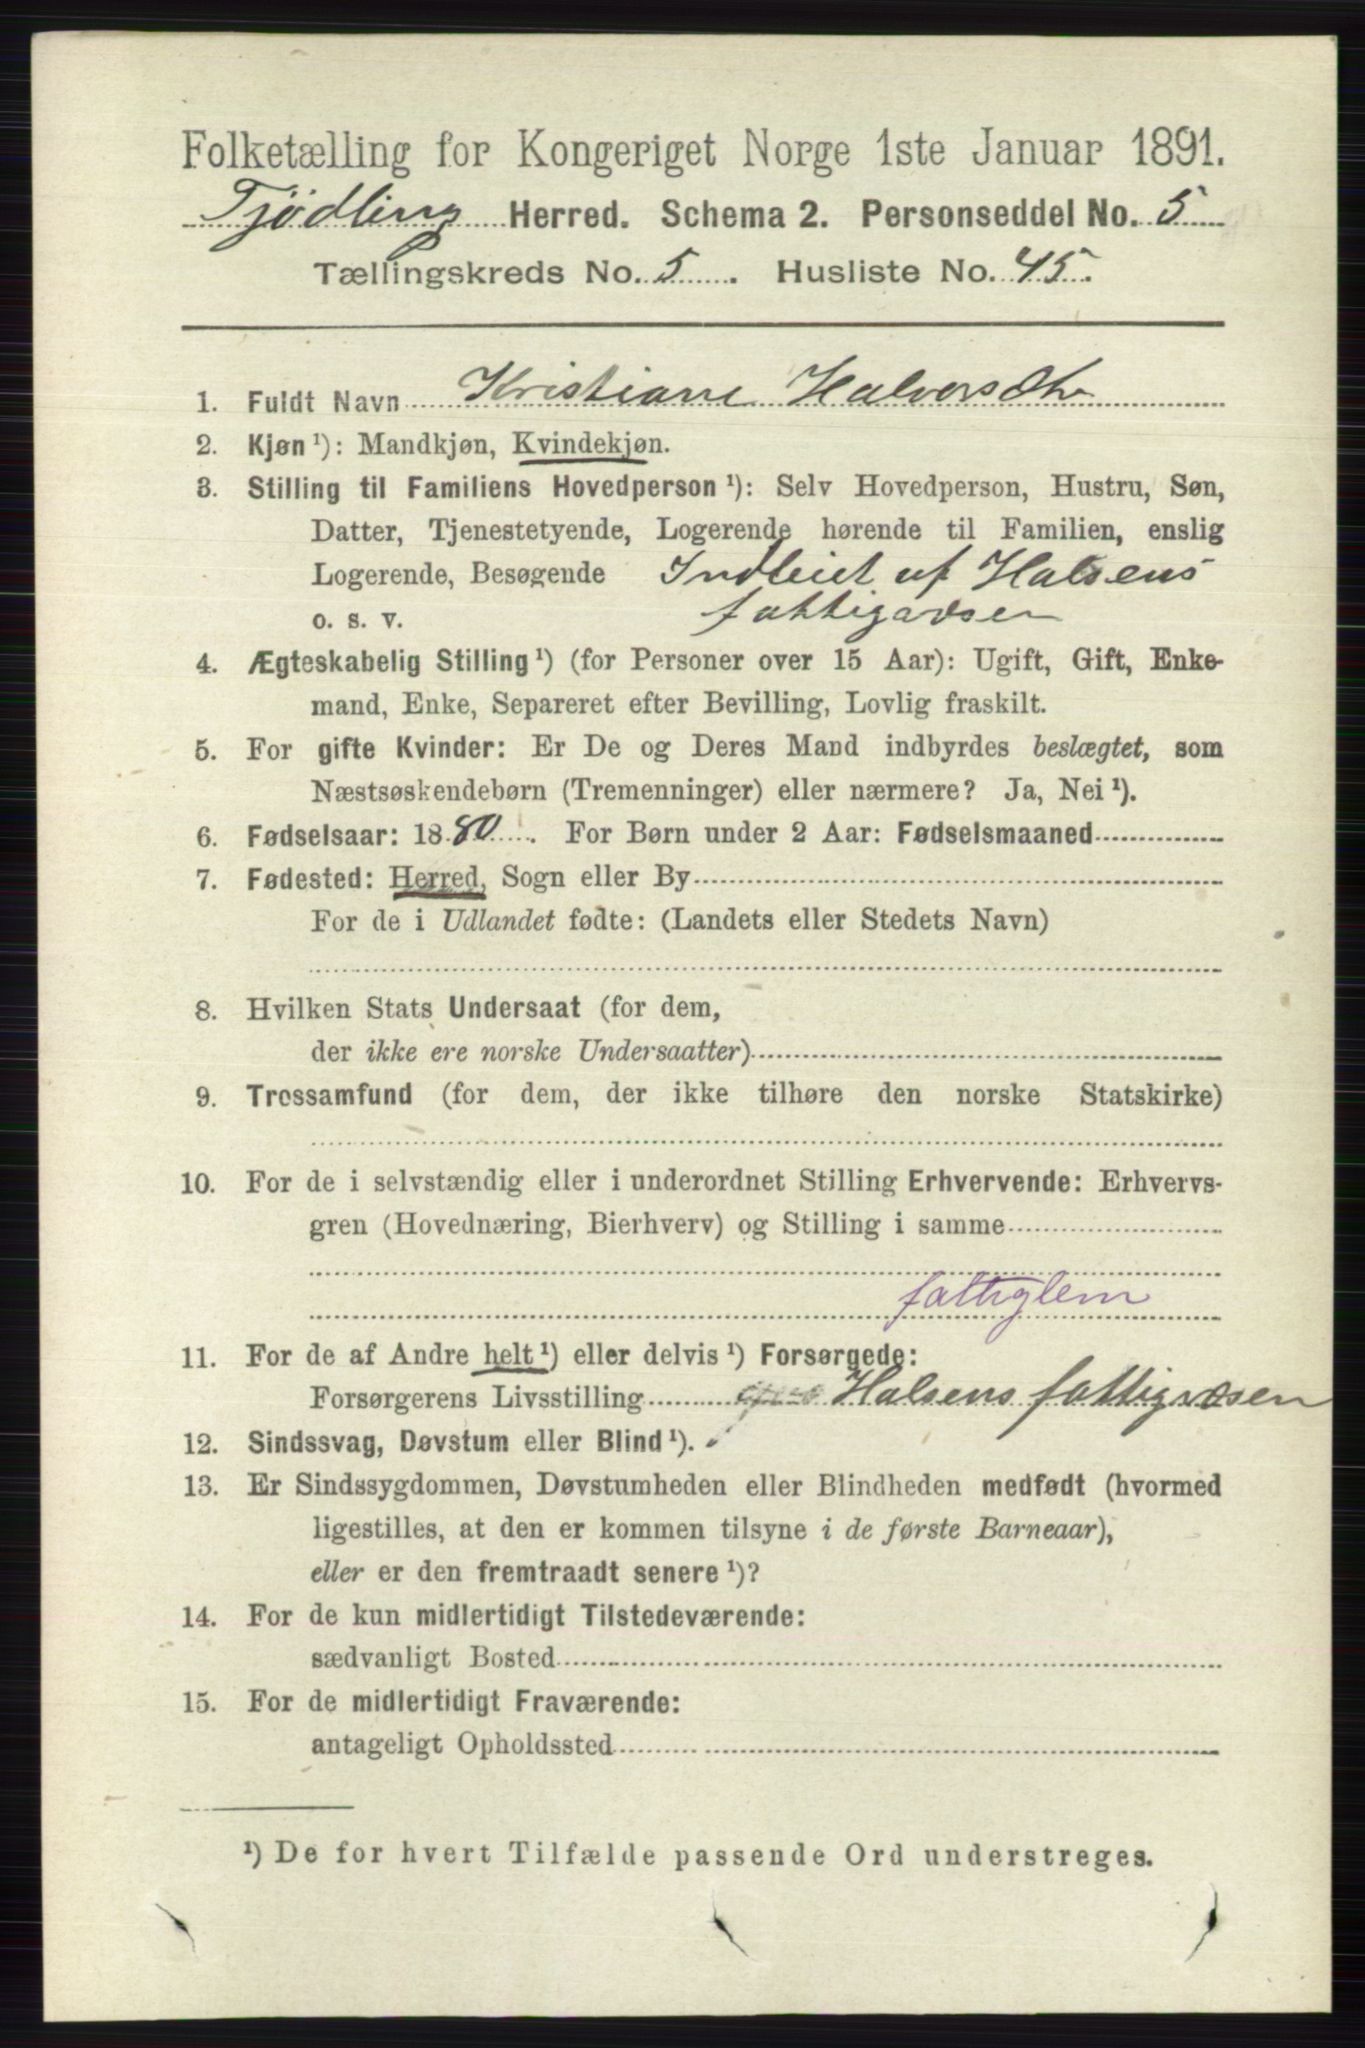 Folketælling for Kongeriget Norge 1ste Januar 1891.
Tjødling Herred. Schema 2. Personseddel No. 5
Tællingskreds No. 5. Husliste No. 45.
1. Fuldt Navn Kristiane Halversdtr
2. Kjøn ¹): Mandkjøn, Kvindekjøn.
3. Stilling til Familiens Hovedperson ¹): Selv Hovedperson, Hustru, Søn,
Datter, Tjenestetyende, Logerende hørende til Familien, enslig
Logerende, Besøgende Indleiet af Halsens
o. s. v. fattigvæsen
4. Ægteskabelig Stilling ¹) (for Personer over 15 Aar): Ugift, Gift, Enke-
mand, Enke, Separeret efter Bevilling, Lovlig fraskilt.
5. For gifte Kvinder: Er De og Deres Mand indbyrdes beslægtet, som
Næstsøskendebørn (Tremenninger) eller nærmere? Ja, Nei ¹).
6. Fødselsaar: 1880. For Børn under 2 Aar: Fødselsmaaned
7. Fødested: Herred, Sogn eller By
For de i Udlandet fødte: (Landets eller Stedets Navn)
8. Hvilken Stats Undersaat (for dem,
der ikke ere norske Undersaatter)
9. Trossamfund (for dem, der ikke tilhøre den norske Statskirke)
10. For de i selvstændig eller i underordnet Stilling Erhvervende: Erhvervs-
gren (Hovednæring, Bierhverv) og Stilling i samme
fattiglem
11. For de af Andre helt ¹) eller delvis ¹) Forsørgede:
Forsørgerens Livsstilling Halsens fattigvæsen
12. Sindssvag, Døvstum eller Blind ¹).
13. Er Sindssygdommen, Døvstumheden eller Blindheden medfødt (hvormed
ligestilles, at den er kommen tilsyne i de første Barneaar),
eller er den fremtraadt senere ¹)?
14. For de kun midlertidigt Tilstedeværende:
sædvanligt Bosted
15. For de midlertidigt Fraværende:
antageligt Opholdssted
¹) De for hvert Tilfælde passende Ord understreges.